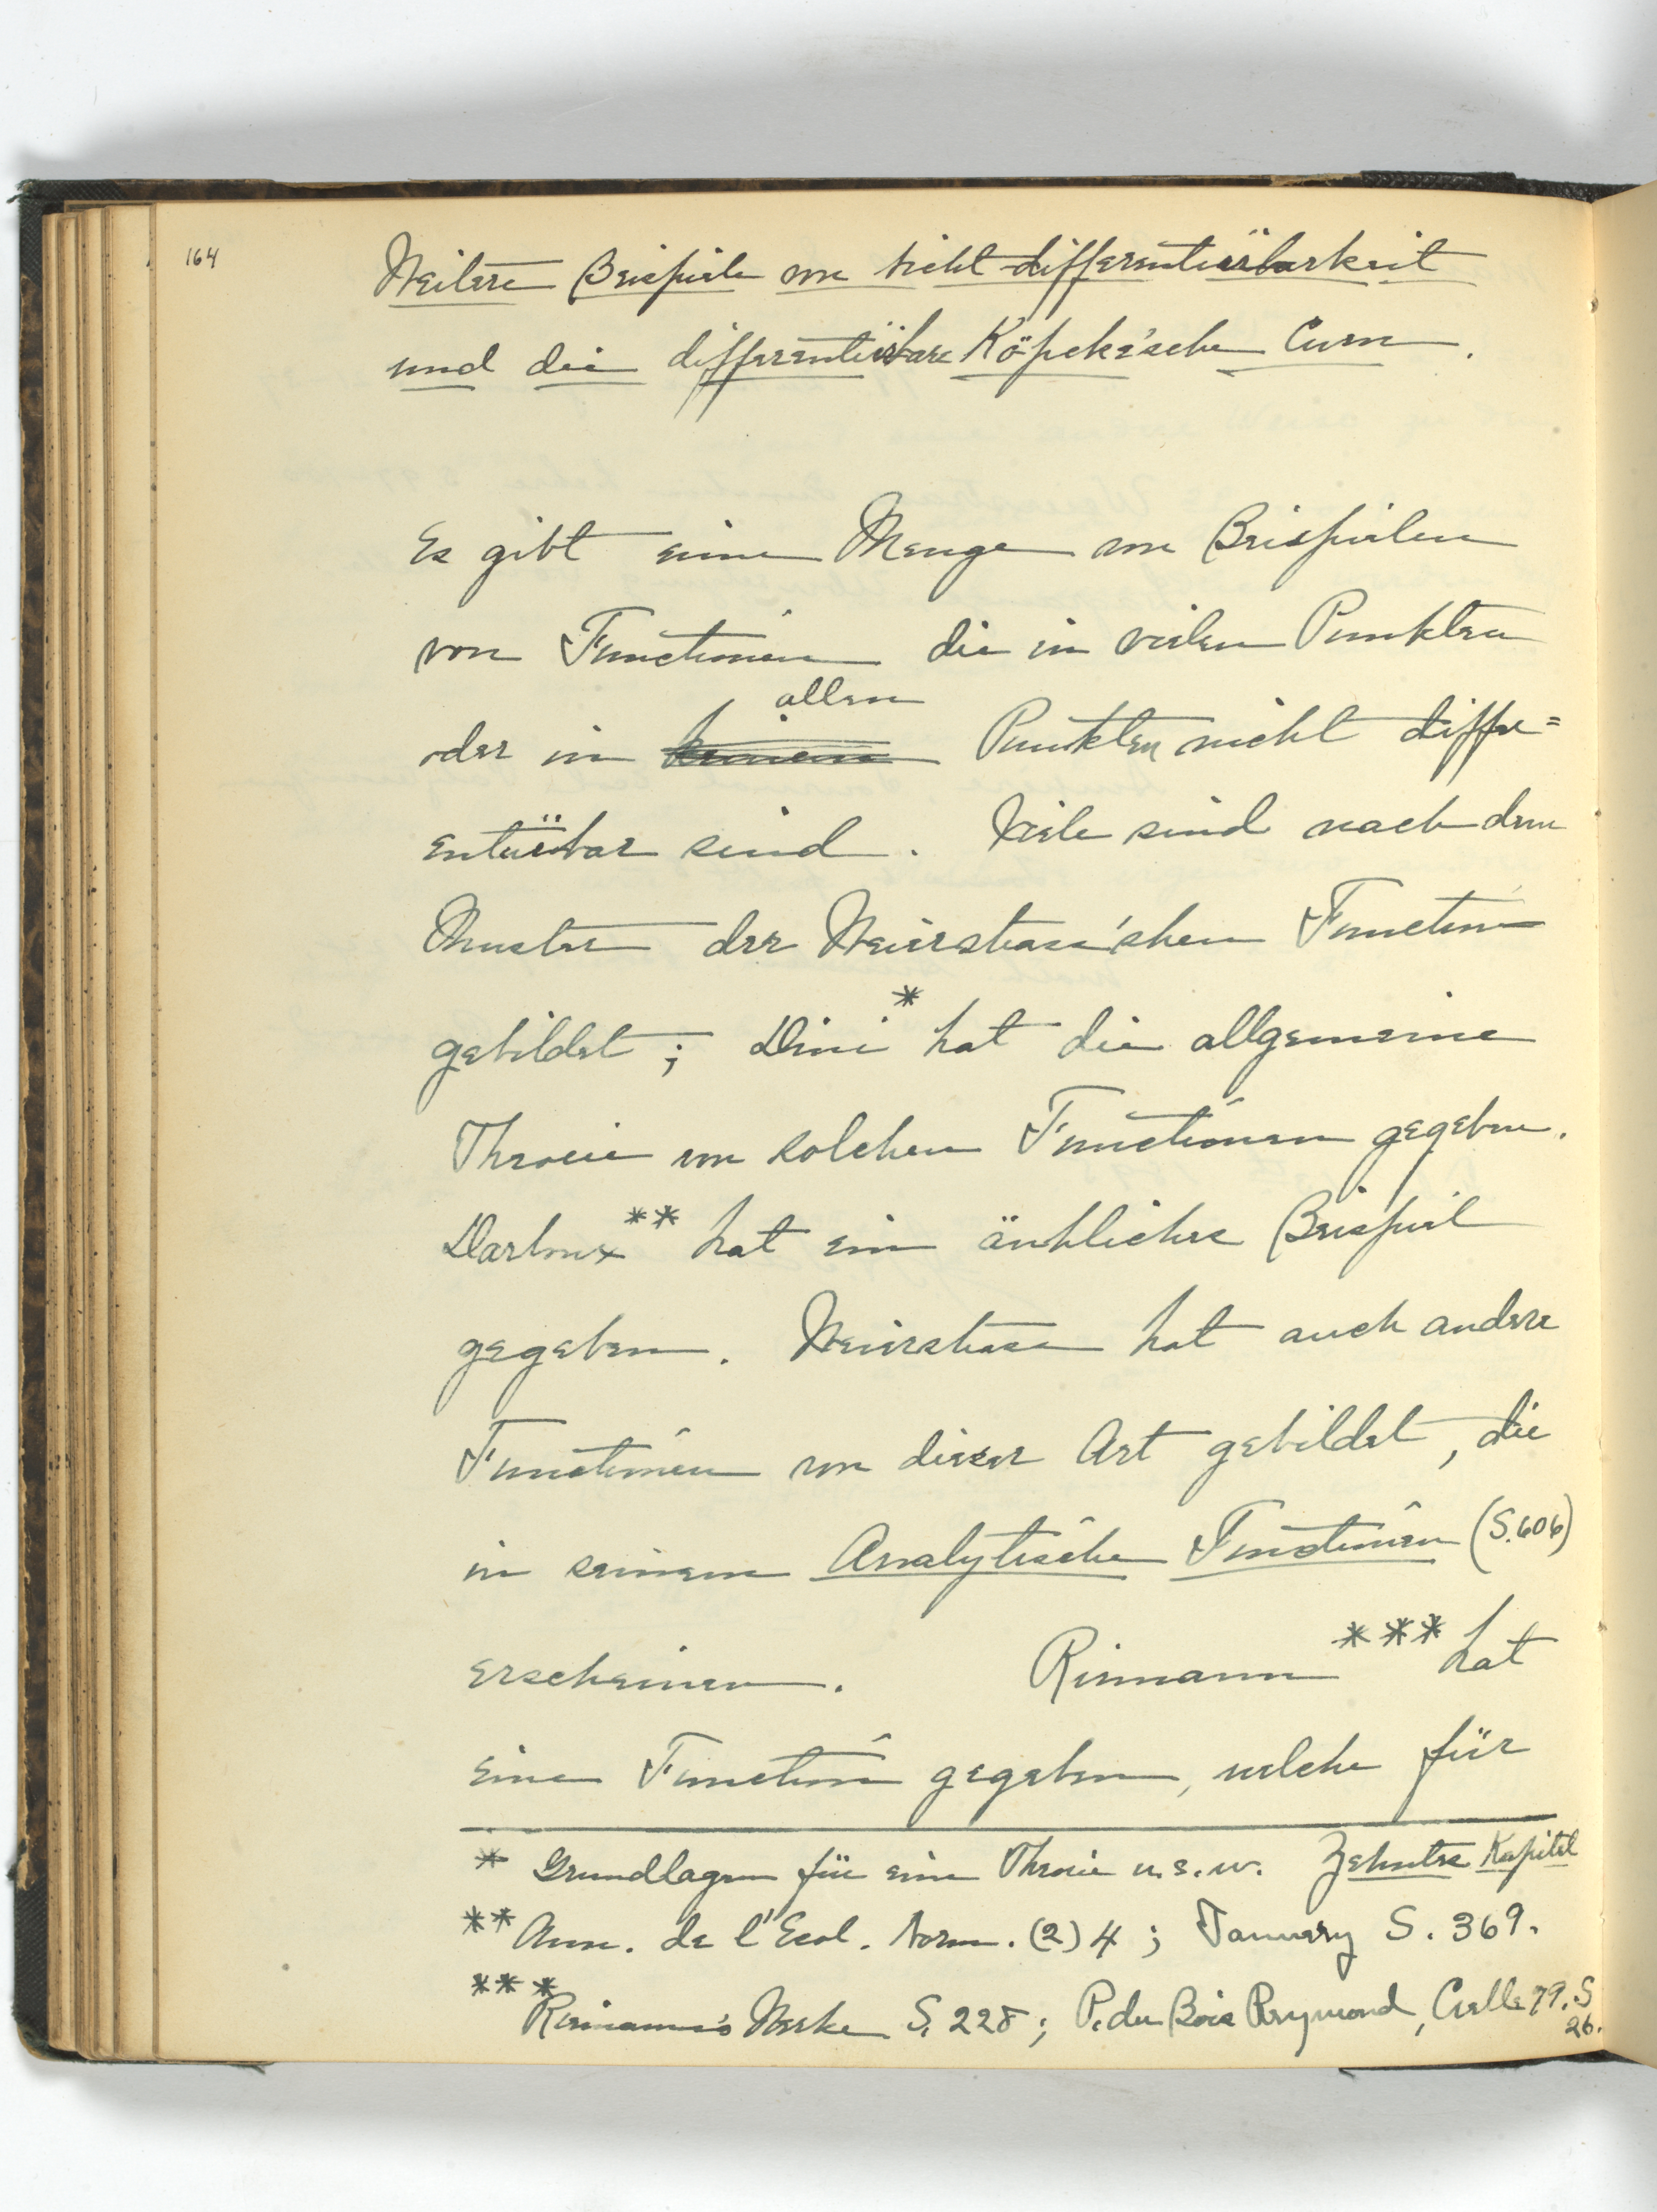 164
Weitere Beispiele von Nicht-differentiïrbarkeit
und die differentiïrbare Köpcke'sche Curve.
Es gibt eine Menge von Beispielen
von Functionen die in vielen Punkten
allen
oder in keinem Punkten nicht differ=
entiïrbar sind. Viele sind nach dem
Muster der Weierstrass'shen Function
gebildet; Dini* hat die allgemeine
Theorie von solchen Functionen gegeben.
Darboux** hat ein änhliches Beispiel
gegeben. Weierstrass hat auch andere
Functionen von dieser Art gebildet, die
in seinem Analytische Functionen (S.606)
erscheinen. Riemann*** hat
eine Function gegeben, welche für
* Grundlagen für eine Theorie u.s.w. Zehntes Kapitel
** Ann. de l'Ecol. Norm. (2) 4; Tannery S. 369.
*** Riemann's Werke S. 228; P. du Bois Reymond, Crelle 79. S
26.